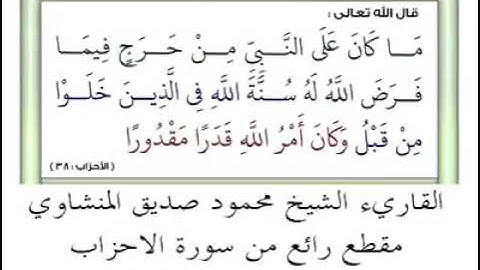 قال الله تعالى :
مَا كَانَ عَلَى النَّبِيِّ مِنْ حَرَجٍ فِيمَا
فَرَضَ اللَّهُ لَهُ سُنَّةَ اللَّهِ فِي الَّذِينَ خَلَوْا
مِنْ قَبْلُ وَكَانَ أَمْرُ اللَّهِ قَدَرًا مَقْدُورًا
(الأحزاب : ٣٨)
القاريء الشيخ محمود صديق المنشاوي
مقطع رائع من سورة الاحزاب